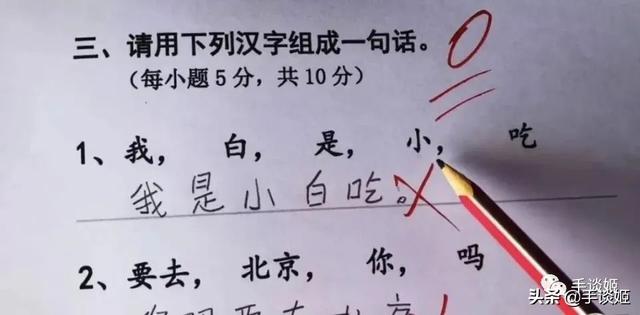 三、请用下列汉字组成一句话。
（每小题5分，共10分）
0
1、我， 白， 是， 小， 吃
我是小白吃。
2、要去， 北京， 你， 吗
手谈姬
头条@手谈姬